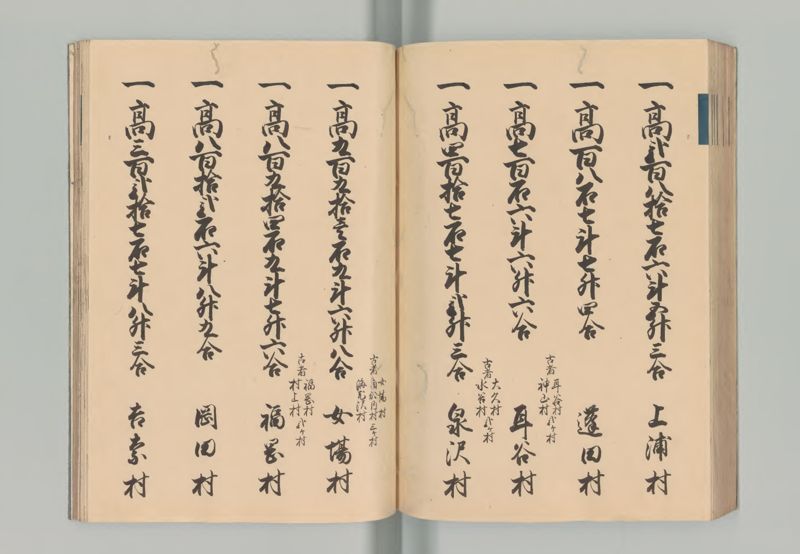 一高弐百八拾七石六斗五升三合 上浦村
一高百八石七斗七升四合 蓬田村
古者 耳谷村 神山村 弐ヶ村
一高七百石六斗六升六合 耳谷村
古者 大久村 水谷村 弐ヶ村
一高四百拾七石七斗弐升三合 泉沢村
古者 女場村 海老沢村 三ヶ村
一高九百九拾壱石九斗六升八合 女場村
古者 福岡村 村上村 弐ヶ村
一高八百九拾四石九斗七升六合 福岡村
一高八百拾弐石六斗八升九合 岡田村
一高三百弐拾七石七斗八升三合 吉索村